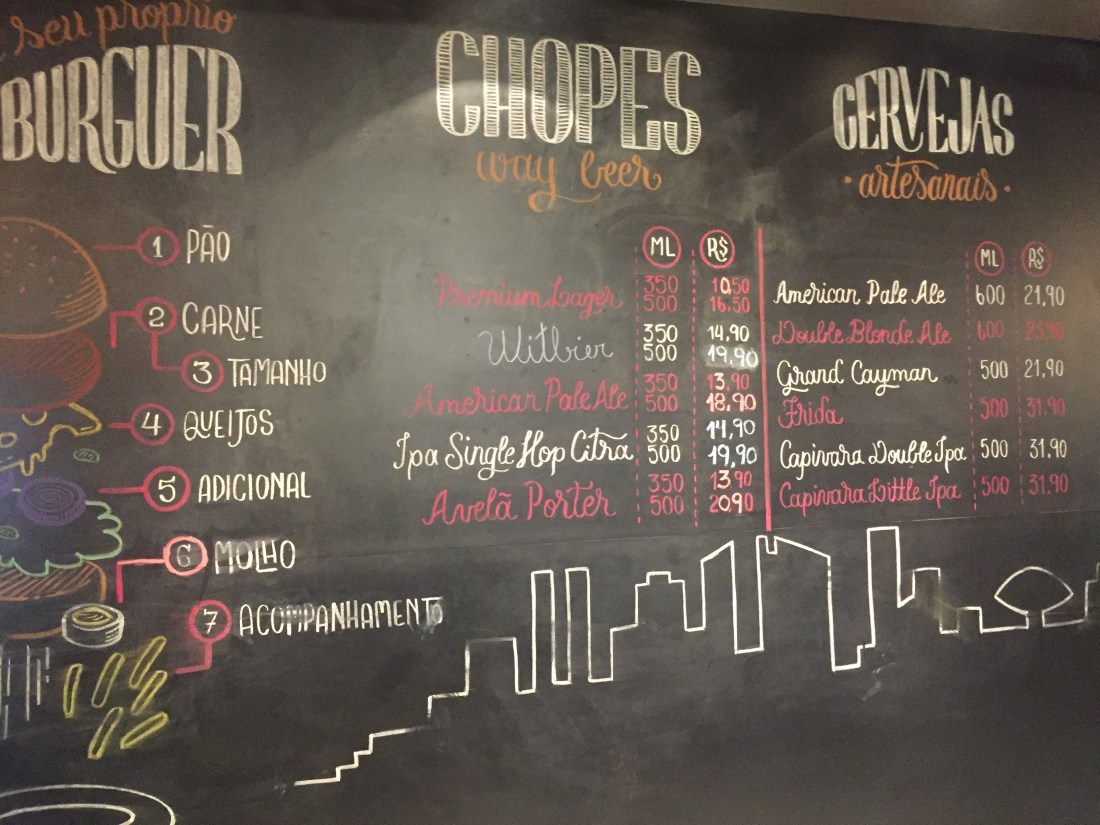 seu proprio
BURGUER
1 PÃO
2 CARNE
3 TAMANHO
4 QUEIJOS
5 ADICIONAL
6 MOLHO
7 ACOMPANHAMENTO
CHOPES
way beer
ML R$
Premium Lager 350 10,50
500 16,50
Witbier 350 14,90
500 19,90
American Pale Ale 350 13,90
500 18,90
Ipa Single Hop Citra 350 14,90
500 19,90
Avelã Porter 350 13,90
500 20,90
CERVEJAS
· artesanais ·
ML R$
American Pale Ale 600 21,90
Double Blonde Ale 600
Grand Cayman 500 21,90
Frida 500 31,90
Capivara Double Ipa 500 31,90
Capivara Little Ipa 500 31,90